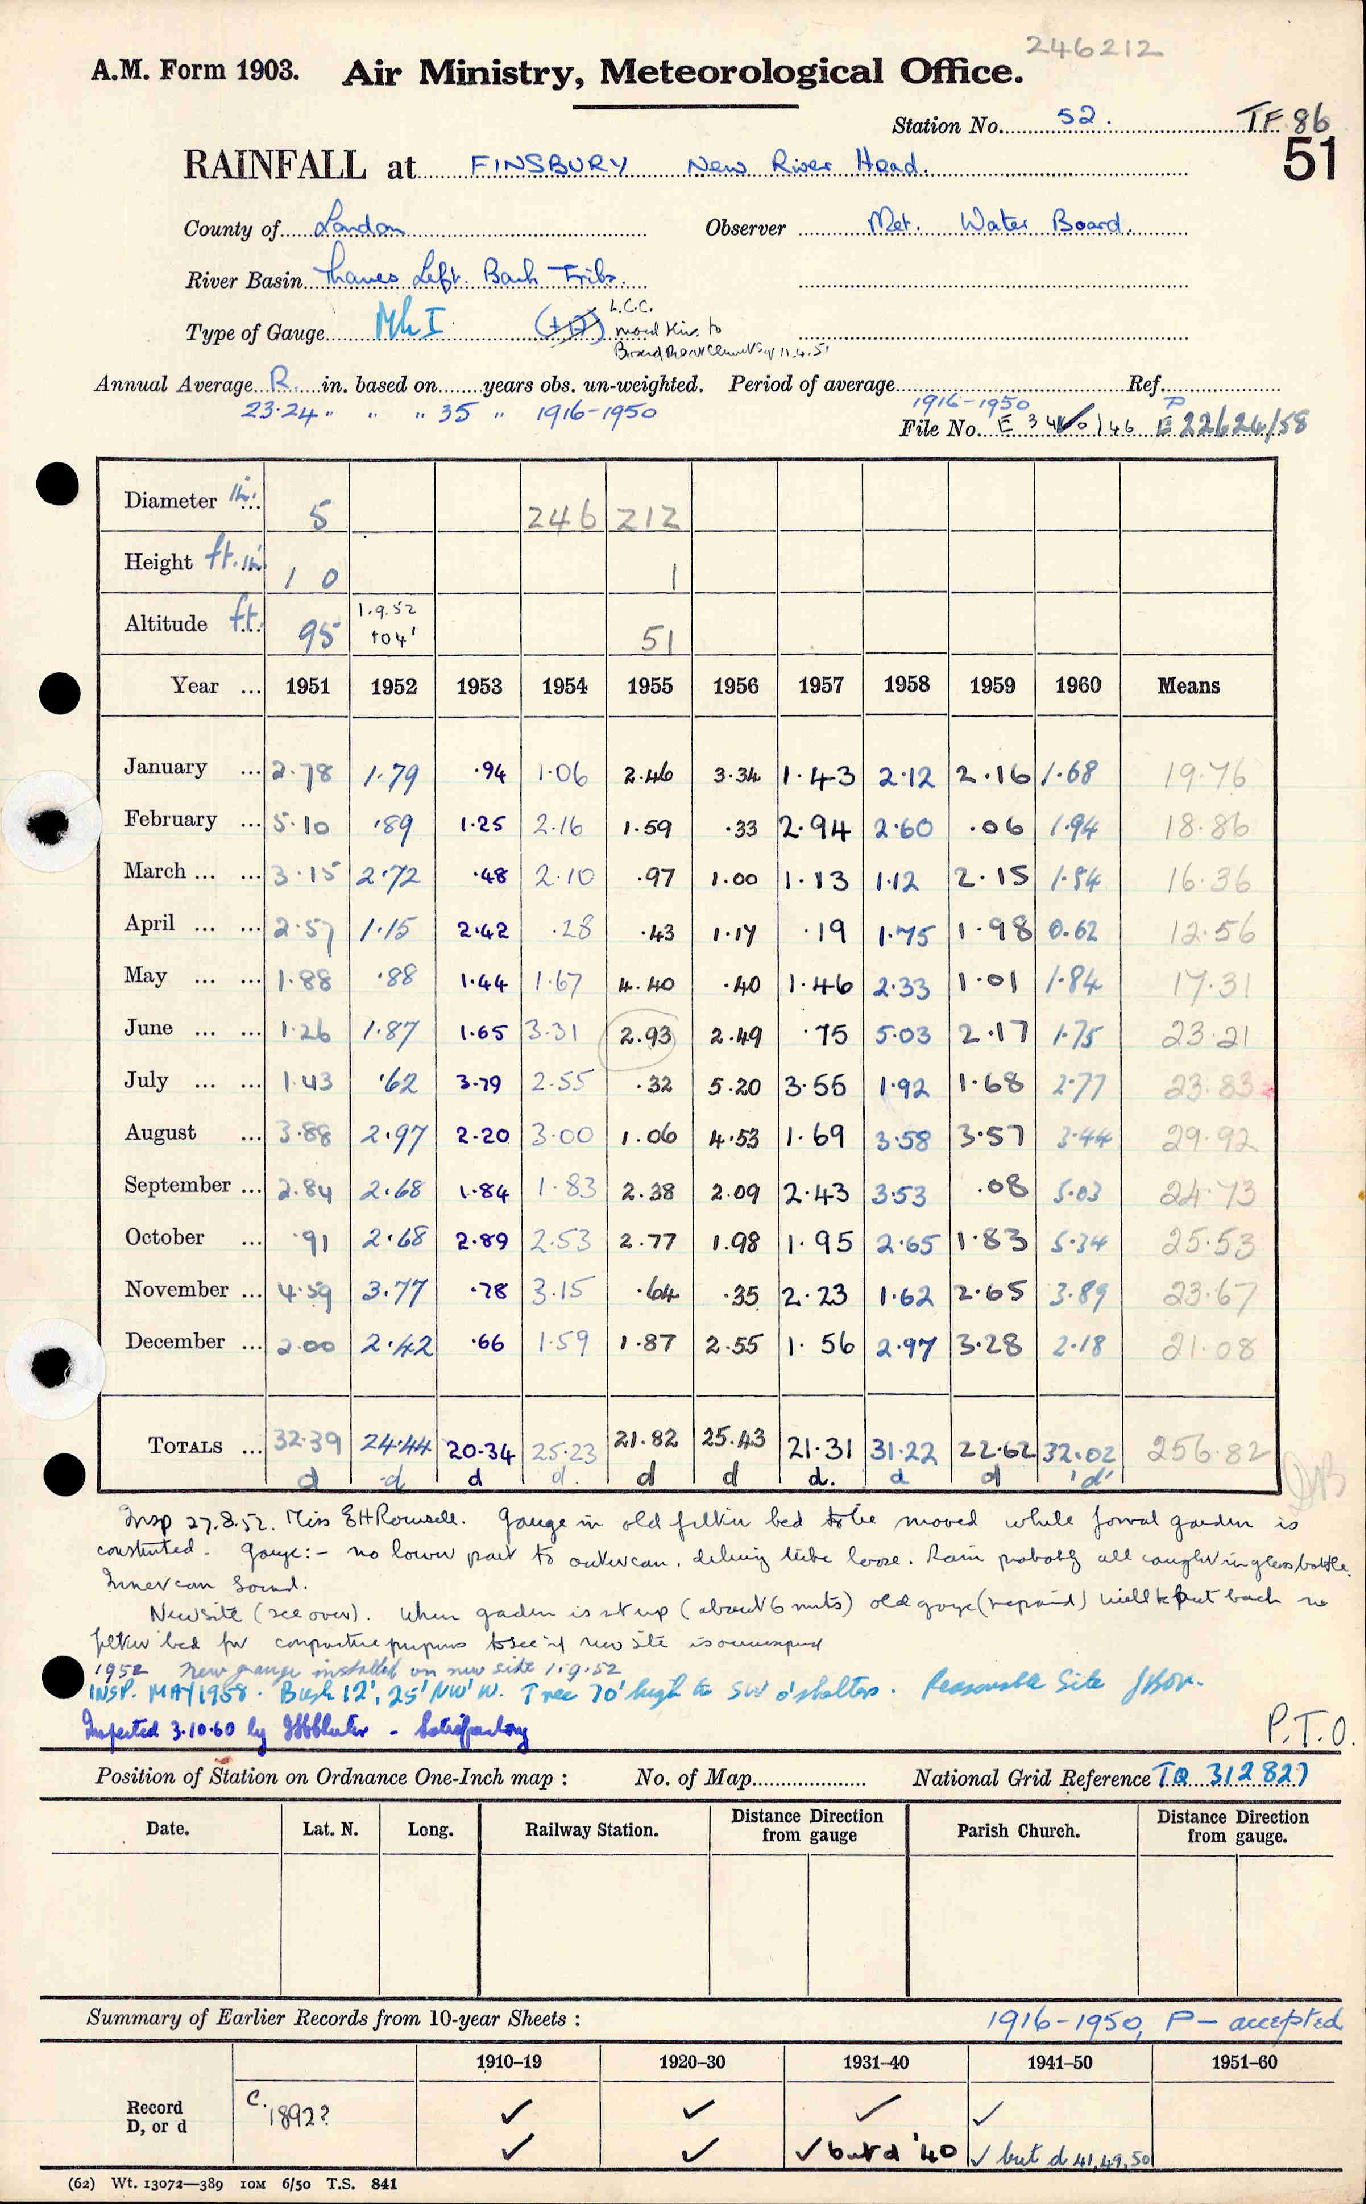 246212
A.M. Form 1903. Air Ministry, Meteorological Office.
Station No. 52. TF 86
51
RAINFALL at FINSBURY New River Head.
County of London Observer Met. Water Board.
River Basin Thames Left Bank Tribs.
Type of Gauge Mk I L.C.C.
Annual Average R. in. based on years obs. un-weighted. Period of average 1916-1950 Ref. P
23.24 " " " 35 " 1916-1950
File No. E 22624/58
Diameter in. 5 246 212
Height ft. in. 1 0 1
Altitude ft. 95 1.9.52 104' 51
Year ... 1951 1952 1953 1954 1955 1956 1957 1958 1959 1960 Means
January ... 2.78 1.79 .94 1.06 2.46 3.34 1.43 2.12 2.16 1.68 19.76
February ... 5.10 .89 1.25 2.16 1.59 .33 2.94 2.60 .06 1.94 18.86
March ... ... 3.15 2.72 .48 2.10 .97 1.00 1.13 1.12 2.15 1.54 16.36
April ... ... 2.57 1.15 2.42 .28 .43 1.17 .19 1.75 1.98 0.62 12.56
May ... ... 1.88 .88 1.44 1.67 4.40 .40 1.46 2.33 1.01 1.84 17.31
June ... ... 1.26 1.87 1.65 3.31 2.93 2.49 .75 5.03 2.17 1.75 23.21
July ... ... 1.43 .62 3.79 2.55 .32 5.20 3.55 1.92 1.68 2.77 23.83
August ... 3.88 2.97 2.20 3.00 1.06 4.53 1.69 3.58 3.57 3.44 29.92
September ... 2.84 2.68 1.84 1.83 2.38 2.09 2.43 3.53 .08 5.03 24.73
October ... .91 2.68 2.89 2.53 2.77 1.98 1.95 2.65 1.83 5.34 25.53
November ... 4.59 3.77 .78 3.15 .64 .35 2.23 1.62 2.65 3.89 23.67
December ... 2.00 2.42 .66 1.59 1.87 2.55 1.56 2.97 3.28 2.18 21.08
TOTALS ... 32.39 24.44 20.34 25.23 21.82 25.43 21.31 31.22 22.62 32.02 256.82
d d d d. d d d. d d 'd'
Insp 27.8.52. Miss E H Rowsell. Gauge in old filter bed to be moved while formal garden is
constructed. Gauge:- no lower part to outer can, delivery tube loose. Rain probably all caught in glass bottle.
Inner can sound.
New site (see over). When garden is set up (about 6 mnts) old gauge (repaired) will be put back
filter bed for comparative purposes to see if new site is
1952 New gauge installed on new site 1.9.52
INSP. MAY 1958. Bush 12', 25' NW' W. Tree 70' high to SW o'shelters. Reasonable Site
Inspected 3.10.60 by - Satisfactory
P.T.O.
Position of Station on Ordnance One-Inch map : No. of Map National Grid Reference TQ 312 827
Date. Lat. N. Long. Railway Station. Distance Direction from gauge Parish Church. Distance Direction from gauge.
Summary of Earlier Records from 10-year Sheets : 1916-1950, P - accepted
1910–19 1920–30 1931–40 1941–50 1951–60
Record C. 1892? ✓ ✓ ✓ ✓
D, or d ✓ ✓ ✓ but d '40 ✓ but d 41, 49, 50
(62) Wt. 13072—389 10M 6/50 T.S. 841